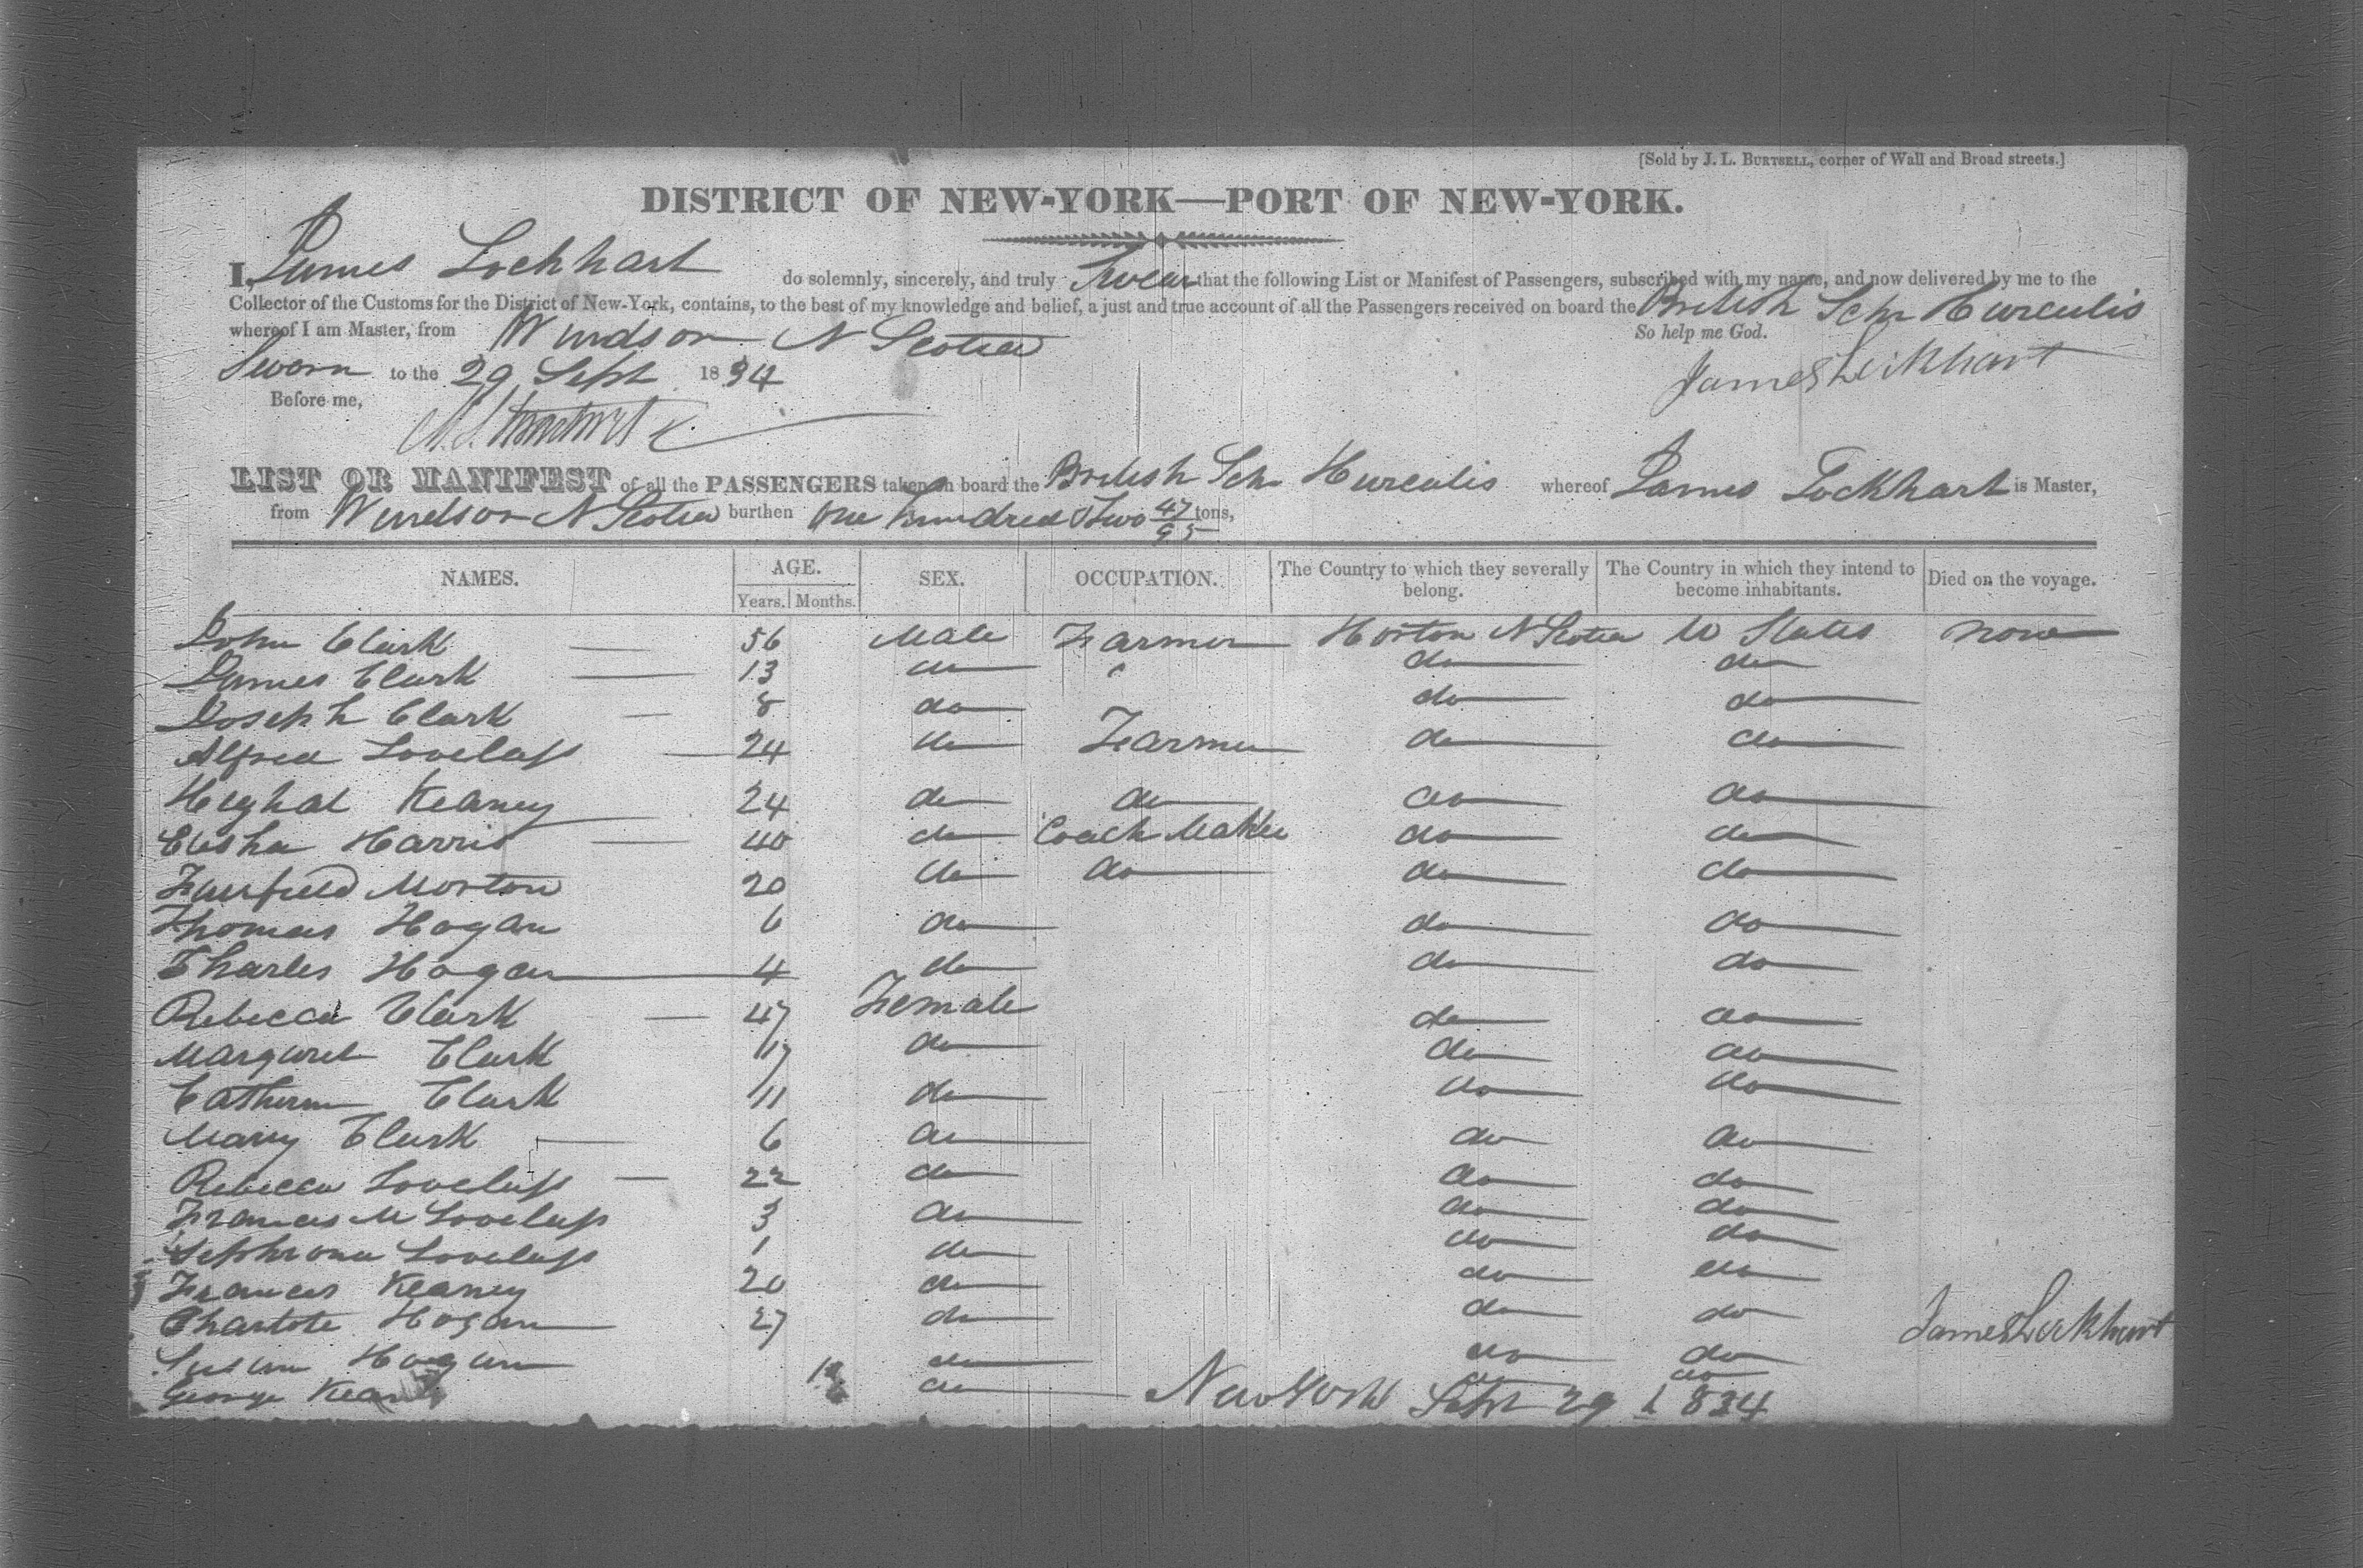 [Sold by J. L. BURTSELL, corner of Wall and Broad streets.]
DISTRICT OF NEW-YORK—PORT OF NEW-YORK.
I, James Lockhart do solemnly, sincerely, and truly Swear that the following List or Manifest of Passengers, subscribed with my name, and now delivered by me to the
Collector of the Customs for the District of New-York, contains, to the best of my knowledge and belief, a just and true account of all the Passengers received on board the British Schr Hurculis
whereof I am Master, from Windsor N Scotia So help me God.
Sworn to the 29 Sept 1834 James Lockhart
Before me,
LIST OR MANIFEST of all the PASSENGERS taken on board the British Schr Hurculis whereof James Lockhart is Master,
from Windsor N Scotia burthen One hundred Two 47/95 tons,
NAMES. AGE. SEX. OCCUPATION. The Country to which they severally belong. The Country in which they intend to become inhabitants. Died on the voyage.
Years. Months.
John Clark 56 Male Farmer Horton N Scotia U States none
James Clark 13 do do do
Joseph Clark 8 do do do
Alfred Lovelass 24 do Farmer do do
Keaney 24 do do do do
Elisha Harris 40 do Coach Maker do do
Fairfield Morton 20 do do do do
Thomas Hogan 6 do do do
Charles Hogan 4 do do do
Rebecca Clark 47 Female do do
Margaret Clark 17 do do do
Catherine Clark 11 do do do
Mary Clark 6 do do do
Rebecca Lovelass 22 do do do
Frances M Lovelass 3 do do do
Lovelass 1 do do do
Frances Keaney 20 do do do
Charlotte Hogan 27 do do do James Lockhart
Susan Hogan do do do
George do do do
New York Sept 29 1834